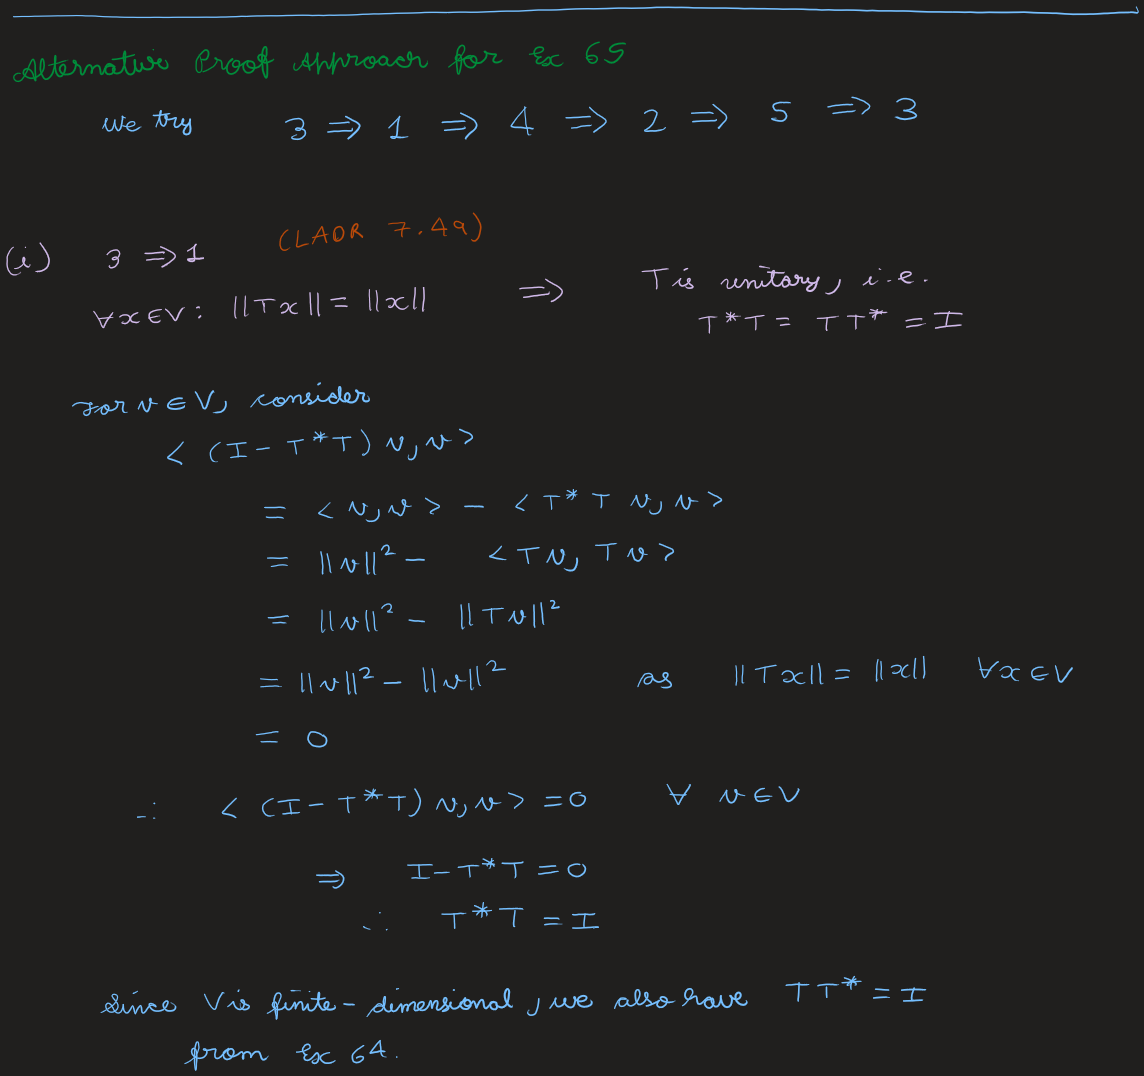 Alternative Proof Approach for Ex 65
We try 3 ⇒ 1 ⇒ 4 ⇒ 2 ⇒ 5 ⇒ 3
(i) 3 ⇒ 1 (LADR 7.49)
∀x∈V: ||Tx|| = ||x|| ⇒ T is unitary, i.e.
T*T = TT* = I
For v ∈ V, consider
< (I - T*T) v, v >
= < v, v > - < T*T v, v >
= ||v||² - < Tv, Tv >
= ||v||² - ||Tv||²
= ||v||² - ||v||² as ||Tx|| = ||x|| ∀x∈V
= 0
∴ < (I - T*T) v, v > = 0 ∀ v∈V
⇒ I - T*T = 0
∴ T*T = I
Since V is finite-dimensional, we also have TT* = I
from Ex 64.